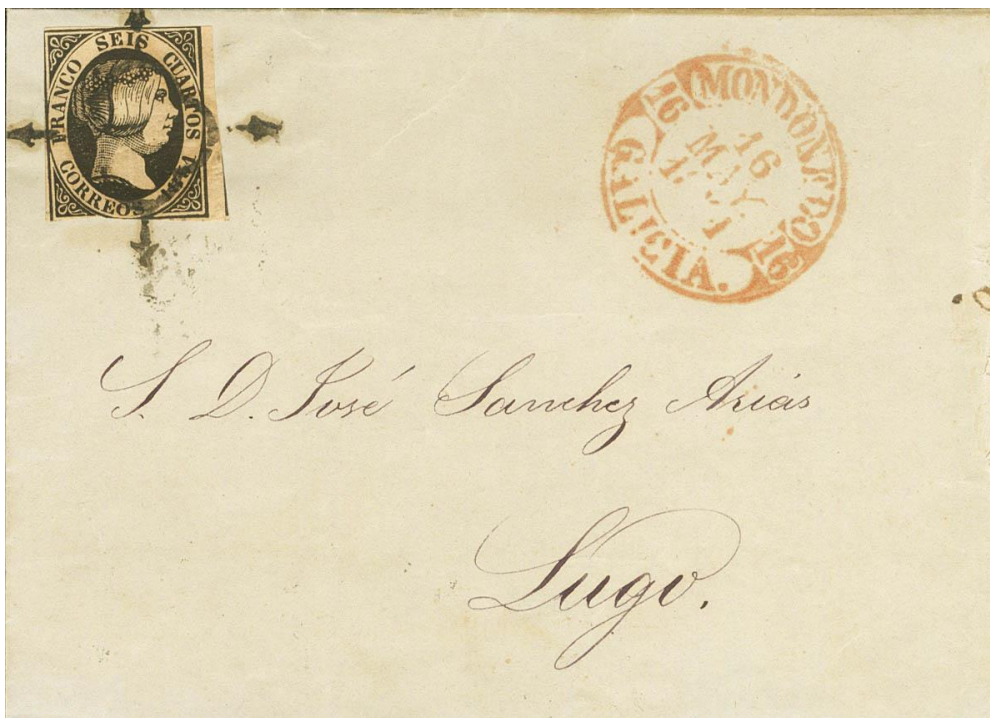 FRANCO SEIS CUARTOS
CORREOS 1851
MONDOÑEDO
16
MAY.
GALICIA.
S. D. José Sanchez Arias
Lugo.